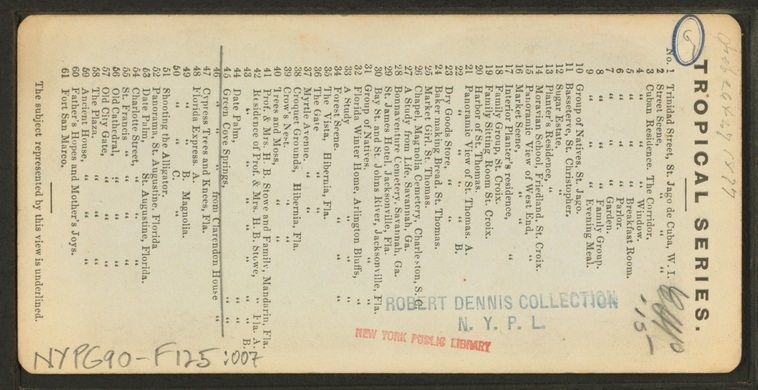 TROPICAL SERIES.
No. 1 Trinidad Street, St. Jago de Cuba, W. I.
2 Street Scene, " "
3 Cuban Residence. The Corridor.
4 " " Window.
5 " " Breakfast Room.
6 " " Parlor.
7 " " Garden.
8 " " Family Group.
9 " " Evening Meal.
10 Group of Natives, St. Jago.
11 Basseterre, St. Christopher.
12 Sugar Estate, "
13 Planter's residence, "
14 Moravian School, Friedland, St. Croix.
15 Panoramic View of West End, "
16 Market Scene, "
17 Interior Planter's residence, "
18 Family Group, St. Croix.
19 Family Sitting Room St. Croix.
20 Harbor of St. Thomas.
21 Panoramic View of St. Thomas. A.
22 " " " B.
23 Dry Goods Store, "
24 Baker making Bread, St. Thomas.
25 Market Girl, St. Thomas.
26 Chapel, Magnolia Cemetery, Charleston, S. C.
27 A Study from Life, Savannah, Ga.
28 Bonnaventure Cemetery, Savannah, Ga.
29 St. James Hotel, Jacksonville, Fla.
30 Bay St. and St. Johns River, Jacksonville, Fla.
31 Group of Natives, " "
32 Florida Winter Home, Arlington Bluffs, "
33 A Study " "
34 Forest Scene. " "
35 The Vista, Hibernia, Fla.
36 The Gate " "
37 Myrtle Avenue, " "
38 Croquet Grounds, Hibernia, Fla.
39 Crow's Nest. " "
40 Trees and Moss, " "
41 Prof. & Mrs. H. B. Stowe and Family, Mandarin, Fla.
42 Residence of Prof. & Mrs. H. B. Stowe, " Fla. A.
43 " " " " " B.
44 Date Palm, " "
45 Green Cove Springs, " "
46 " " " from Clarendon House " "
47 Cypress Trees and Knees, Fla.
48 Florida Express. A.
49 " " B. Magnolia.
50 " " C. "
51 Shooting the Alligator.
52 Panorama, St. Augustine, Florida
53 Date Palm, St. Augustine, Florida.
54 Charlotte Street, " "
55 St. Francis " " "
56 Old Cathedral, " "
57 Old City Gate, " "
58 The Plaza, " "
59 Ancient House, " "
60 Father's Hopes and Mother's Joys.
61 Fort San Marco.
The subject represented by this view is underlined.
-15-
ROBERT DENNIS COLLECTION
N. Y. P. L.
NEW YORK PUBLIC LIBRARY
NYPG90-F125:007